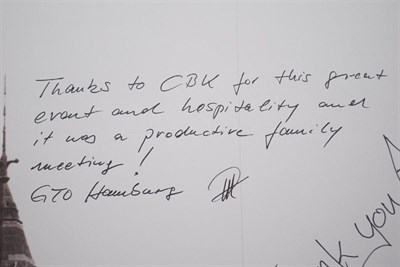 Thanks to CBK for this great
event and hospitality and
it was a productive family
meeting!
GTO Hamburg
you